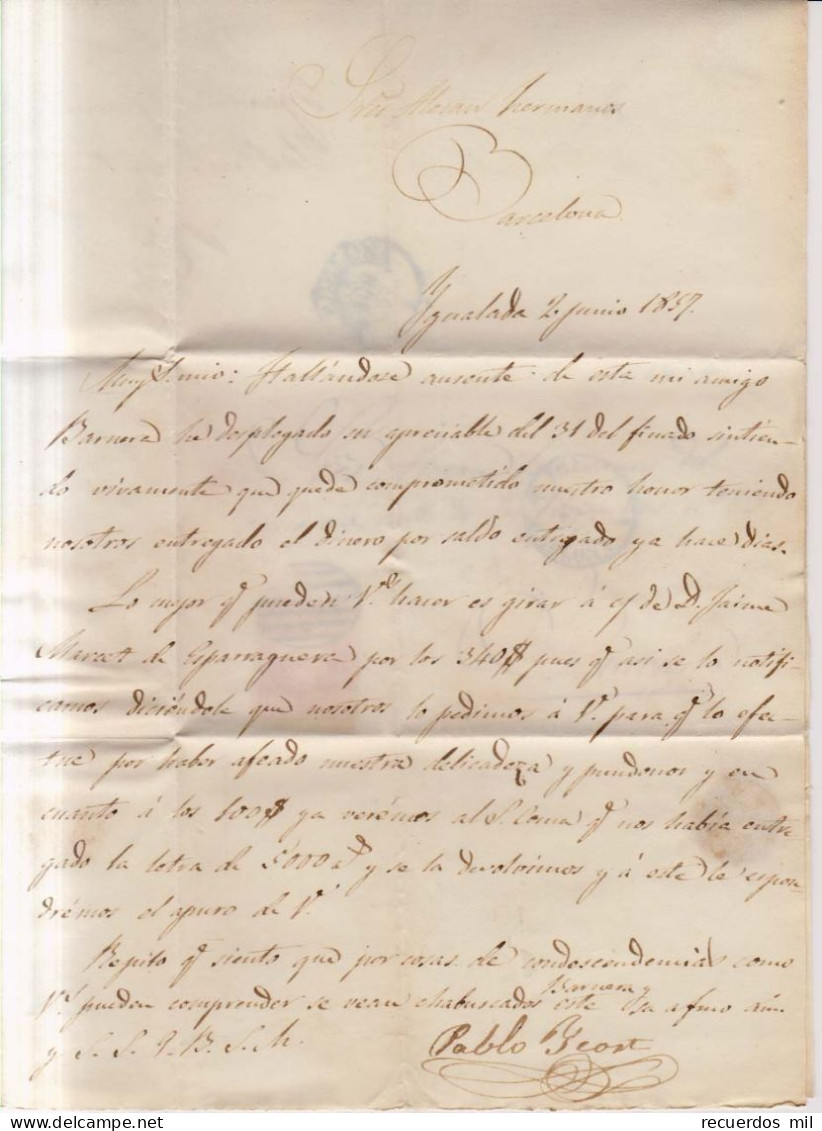 Sres. hermanos
Barcelona
Ygualada 2 junio 1857.
Muy S. mio: Hallándose ausente de esta mi amigo
Barnera he desplegado su apreciable del 31 del finado sintien-
do vivamente que quede comprometido nuestro honor teniendo
nosotros entregado el dinero por saldo entregado ya hace dias.
Lo mejor qe pueden Vs. hacer es girar á c/ de D. Jaime
Marcet de Esparraguera por los 340$ pues qe asi se lo notifi-
camos diciéndole que nosotros lo pedimos á Vs. para qe lo efec-
tue por haber afeado nuestra delicadeza y pundonor y en
cuanto á los 100$ ya verémos al S. Coma qe nos había entre-
gado la letra de 5000 y se la devolvimos y á este le espon-
drémos el apuro de Vs.
Repito qe siento que por cosas de condescendencia como
Vs. pueden comprender se vean Barnera y
este su afmo am.
y S. S. Q. B. S. M.
Pablo
recuerdos mil